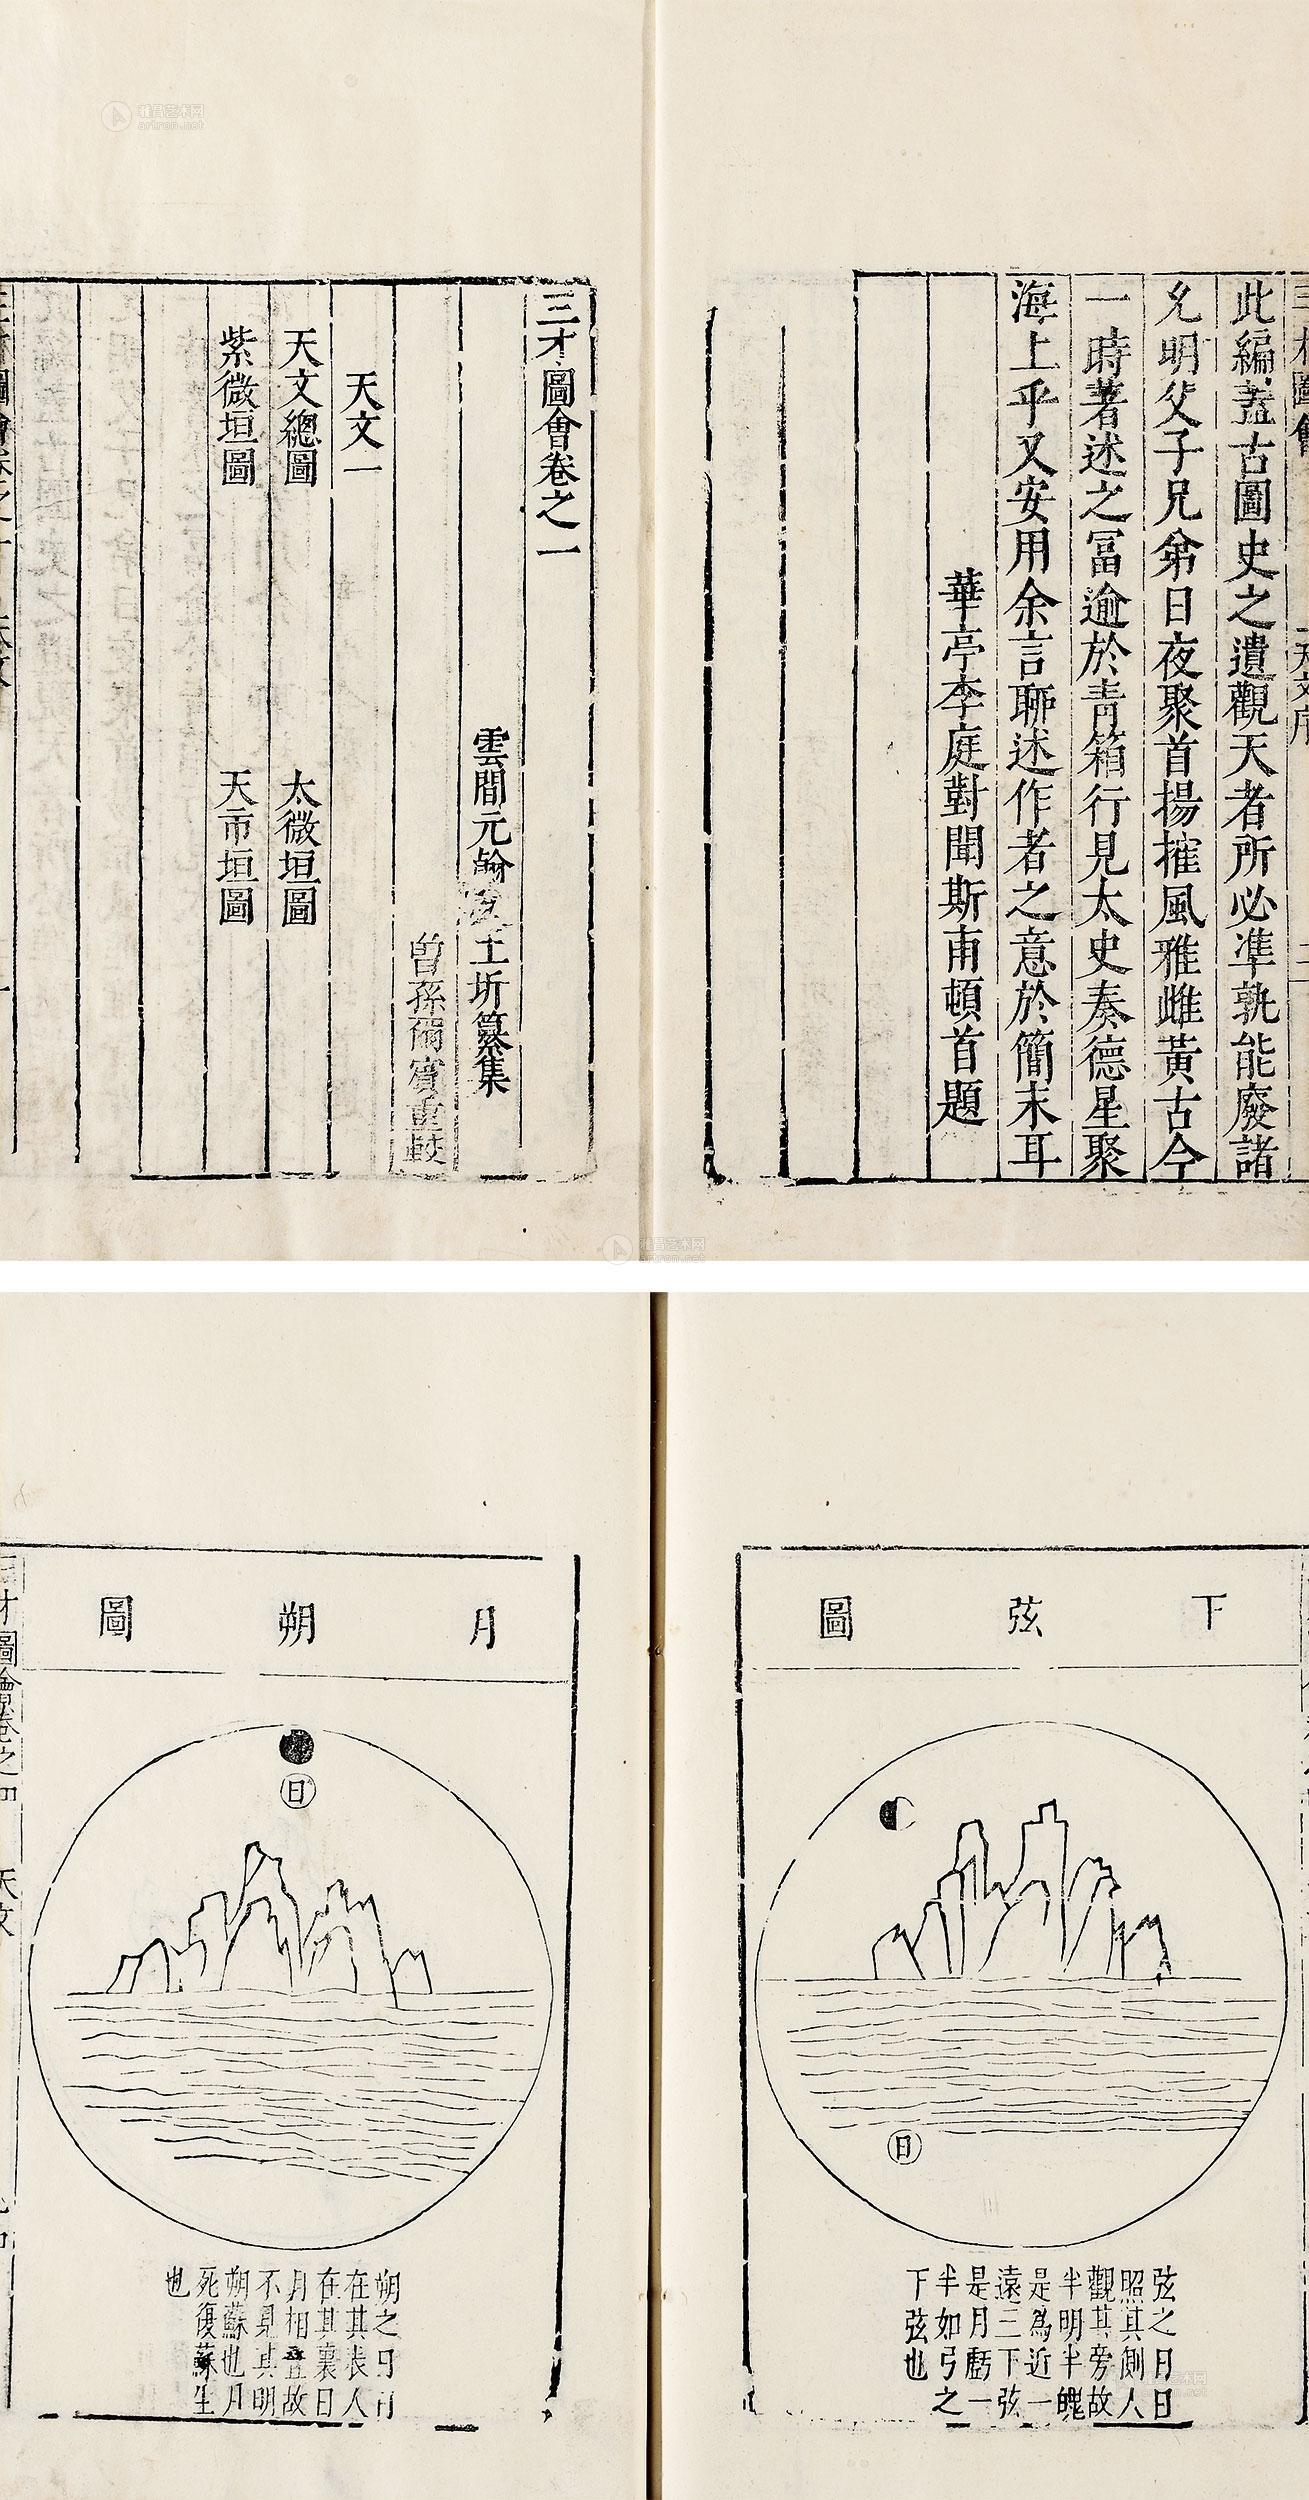 此編蓋古圖史之遺觀天者所必準孰能廢諸
允明父子兄弟日夜聚首揚搉風雅雌黃古今
一時著述之冨逾於青箱行見太史奏德星聚
海上乎又安用余言聊述作者之意於簡末耳
華亭李庭對聞斯甫頓首題
三才圖會卷之一
雲間元翰父王圻纂集
曾孫爾賓重較
天文一
天文總圖
太微垣圖
紫微垣圖
天市垣圖
下弦圖
日
弦之日日
照其側人
觀其旁故
半明半魄
是為近一
遠三下弦
是月虧一
半如弓之
下弦也
月朔圖
日
朔之日月
在其表人
在其裏日
月相疊故
不見其明
朔蘇也月
死復蘇生
也
雅昌艺术网
artron.net